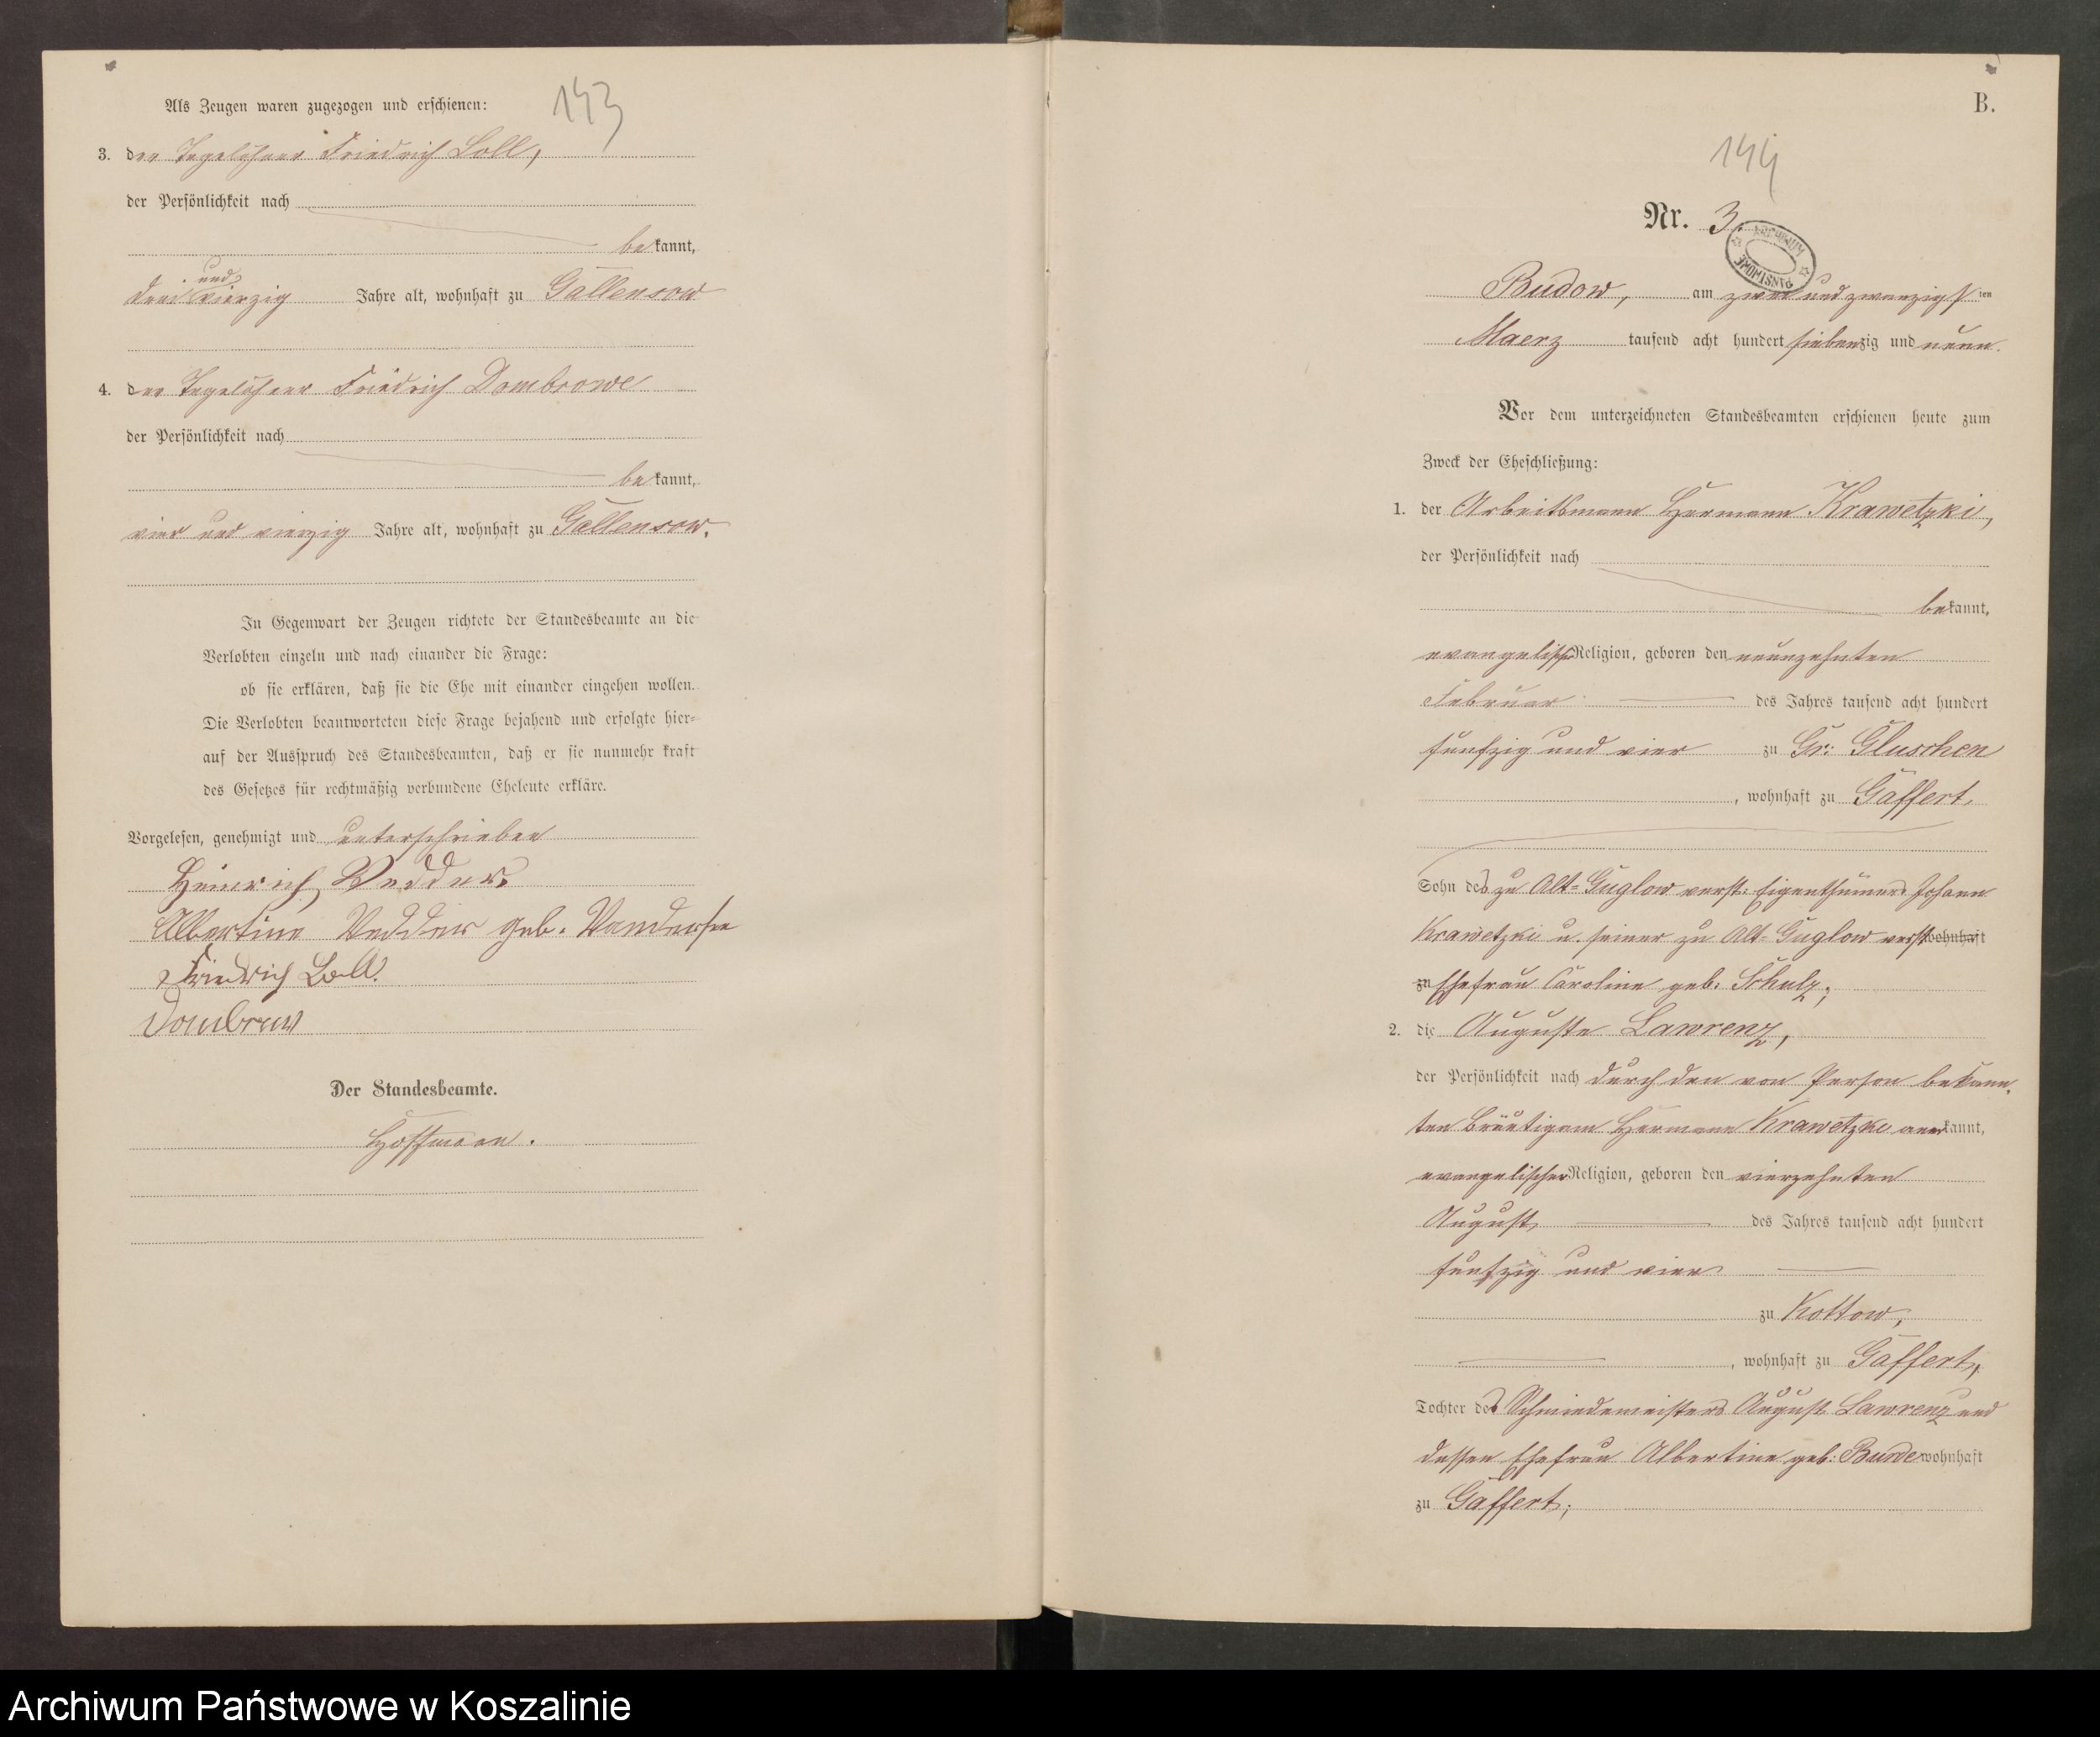 Als Zeugen waren zugezogen und erschienen:
143
3. der Tagelöhner Friedrich Loll,
der Persönlichkeit nach
bekannt,
und
drei vierzig Jahre alt, wohnhaft zu Gallensow
4. der Tagelöhner Friedrich Dombrowe
der Persönlichkeit nach
bekannt,
vier und vierzig Jahre alt, wohnhaft zu Gallensow.
In Gegenwart der Zeugen richtete der Standesbeamte an die
Verlobten einzeln und nach einander die Frage:
ob sie erklären, daß sie die Ehe mit einander eingehen wollen.
Die Verlobten beantworteten diese Frage bejahend und erfolgte hier-
auf der Ausspruch des Standesbeamten, daß er sie nunmehr kraft
des Gesetzes für rechtmäßig verbundene Eheleute erkläre.
Vorgelesen, genehmigt und unterschrieben
Heinrich Vedder
Albertine Vedder geb. Wandersee
Friedrich Loll.
Dombrow
Der Standesbeamte.
Hoffmann.
B.
144
Nr. 3.
ARCHIWUM PAŃSTWOWE
Budow, am zwei und zwanzigsten
Maerz tausend acht hundert siebenzig und neun.
Vor dem unterzeichneten Standesbeamten erschienen heute zum
Zweck der Eheschließung:
1. der Arbeitsmann Hermann Krawetzki,
der Persönlichkeit nach
bekannt,
evangelischer Religion, geboren den neunzehnten
Februar des Jahres tausend acht hundert
funfzig und vier zu Gr: Gluschen
, wohnhaft zu Gaffert,
Sohn des zu Alt-Guglow verst: Eigenthümers Johann
Krawetzki u. seiner zu Alt-Guglow verst wohnhaft
zu Ehefrau Caroline geb: Schulz;
2. die Auguste Lawrenz,
der Persönlichkeit nach durch den von Person bekann-
ten Bräutigam Hermann Krawetzki anerkannt,
evangelischer Religion, geboren den vierzehnten
August des Jahres tausend acht hundert
funfzig und vier
zu Kottow,
, wohnhaft zu Gaffert,
Tochter des Schmiedemeisters August Lawrenz und
dessen Ehefrau Albertine geb: Burde wohnhaft
zu Gaffert;
Archiwum Państwowe w Koszalinie